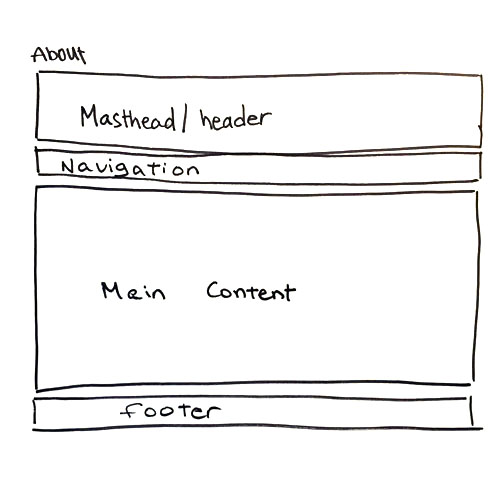 About
Masthead/ header
Navigation
Main Content
footer